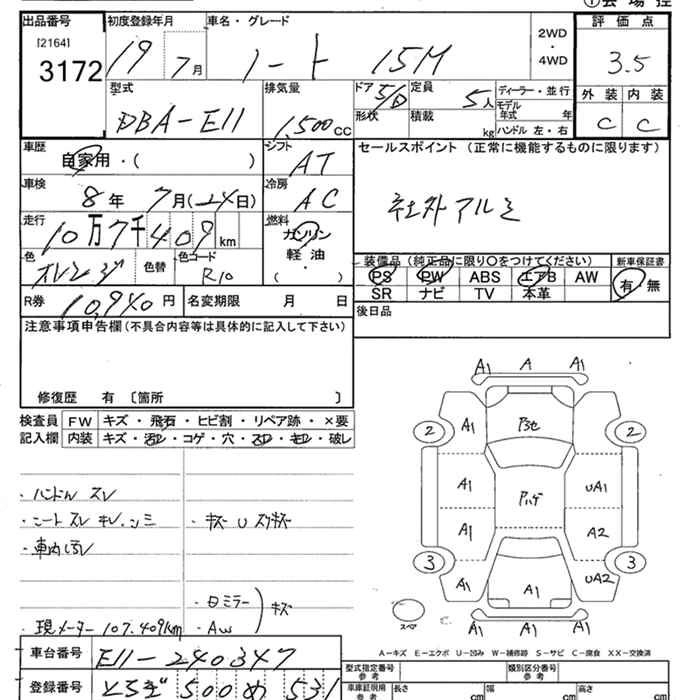 ①会場控
出品番号
[2164]
3172
初度登録年月
19年 7月
車名・グレード
ノート 15M
2WD
・
4WD
評価点
3.5
外装 内装
C C
型式
DBA-E11
排気量
1,500 cc
ドア 5/D
形状
定員 5人
積載 kg
ディーラー・並行
モデル
年式 年
ハンドル 左・右
車歴
自家用・( )
シフト
AT
車検
8年 7月(24日)
冷房
AC
走行
10万7千409 km
燃料
ガソリン
軽油
( )
色
オレンジ
色替
色コード
R10
R券 10,940円
名変期限 月 日
セールスポイント (正常に機能するものに限ります)
社外アルミ
装備品 (純正品に限り○をつけてください)
PS PW ABS エアB AW
SR ナビ TV 本革
新車保証書
有・無
後日品
注意事項申告欄(不具合内容等は具体的に記入して下さい)
修復歴 有 〔箇所 〕
検査員
記入欄
FW キズ・飛石・ヒビ割・リペア跡・×要
内装 キズ・汚れ・コゲ・穴・スレ・キレ・破レ
・ハンドル スレ
・シート スレ キレ・シミ
・キズ U スリキズ
・車内汚れ
・日ミラー
・AW
キズ
現メーター 107.409km
A1 A A1
2 2
A1
A1 UA1
A1 A2
3 3
A1 A1 UA2
A1 A1 A1
スペア
A-キズ E-エクボ U-凹み W-補修跡 S-サビ C-腐食 XX-交換済
車台番号 E11-240347
登録番号 とちぎ 500 め 531
型式指定番号
参考
類別区分番号
参考
車庫証明用
参考
長さ cm
幅 cm
高さ cm